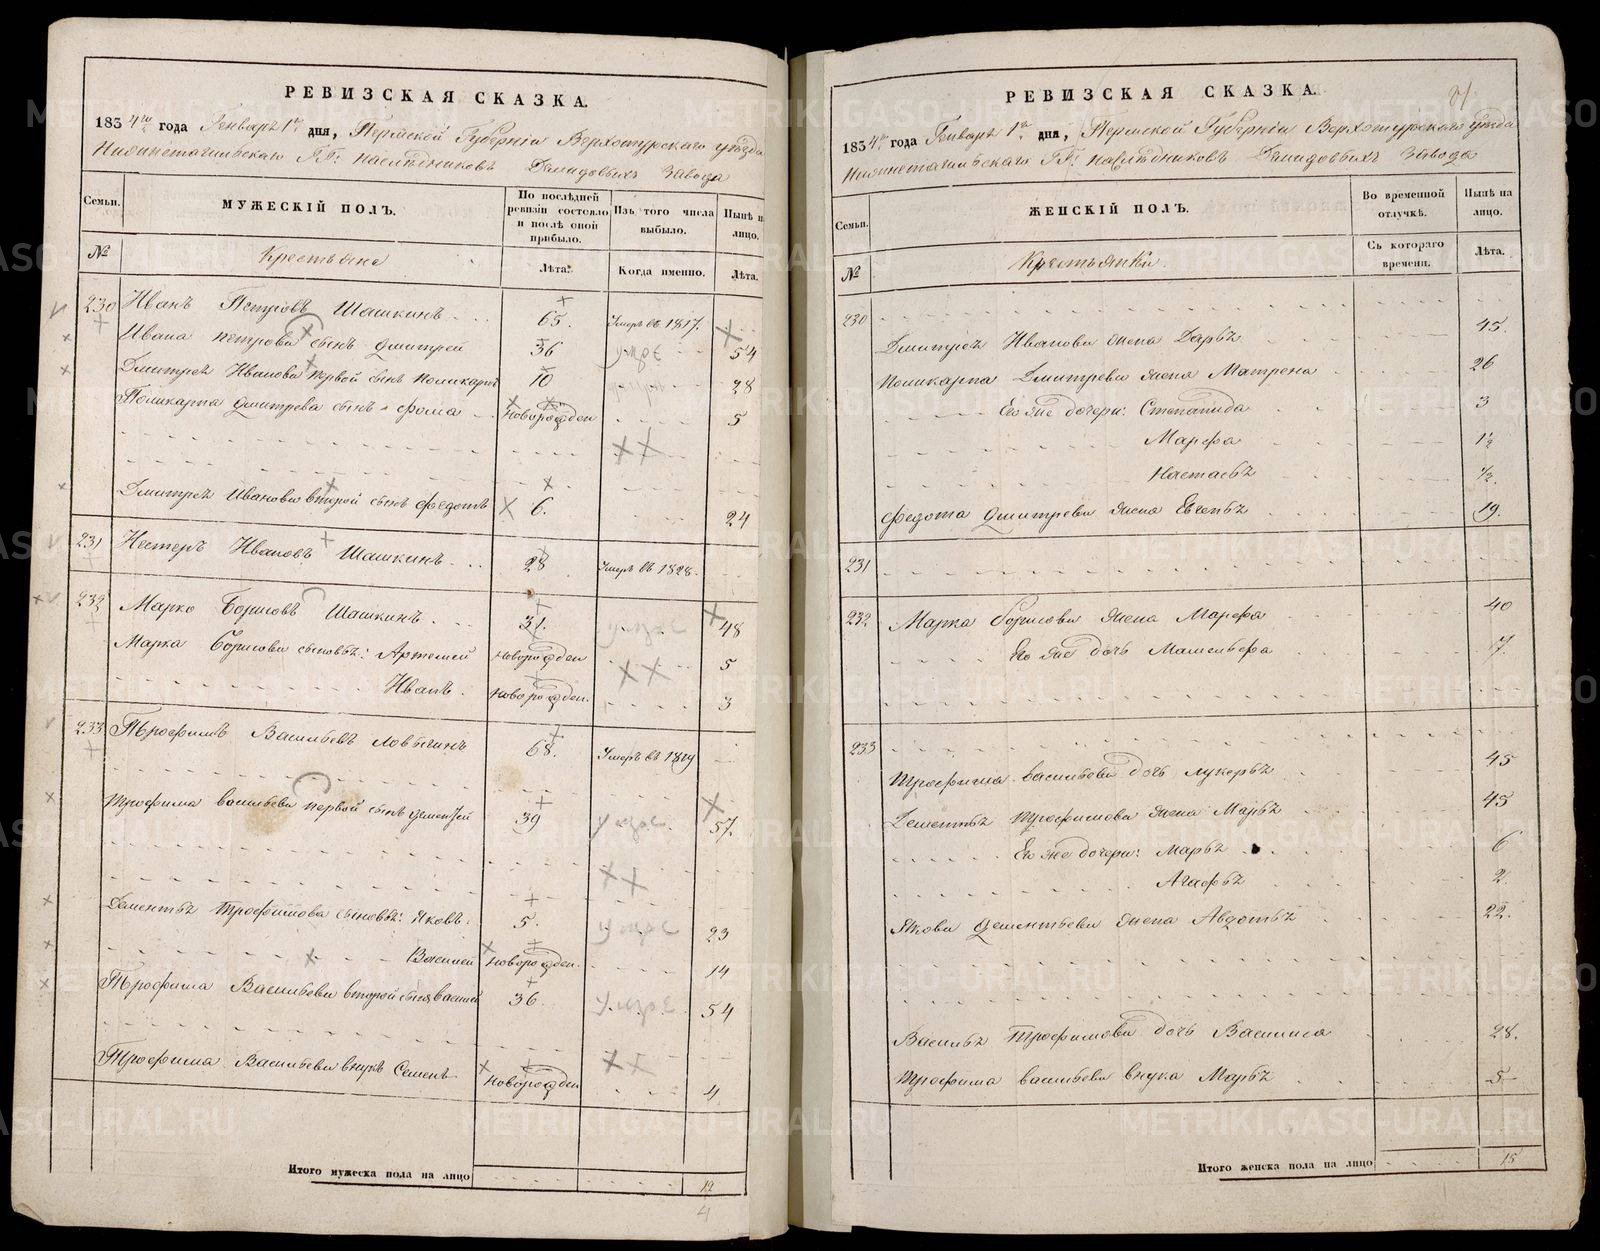 РЕВИЗСКАЯ СКАЗКА.
1834го года Генваря 1го дня, Пермской Губерніи Верхотурского уѣзда
Нижнетагильскаго ГГ: наслѣдниковъ Демидовыхъ завода
Семьи.
МУЖЕСКІЙ ПОЛЪ.
По послѣдней ревизіи состояло и послѣ оной прибыло.
Изъ того числа выбыло.
Нынѣ на лицо.
№
Крестьяне
Лѣта.
Когда именно.
Лѣта.
230 Иванъ Петровъ Шашкинъ 65. Умеръ въ 1817.
Ивана Петрова сынъ Дмитрей 36 54
Дмитрея Иванова первой сынъ Поликарпъ 10 28
Поликарпа Дмитрева сынъ Фома новорожден 5
Дмитрея Иванова второй сынъ Федотъ 6. 24
231 Нестеръ Ивановъ Шашкинъ 28 Умеръ въ 1828.
232 Марко Борисовъ Шашкинъ 31. 48
Марка Борисова сыновья: Артемий новорожден 5
Иванъ. новорожден. 3
233 Трофимъ Васильевъ Ловыгинъ 68. Умеръ въ 1819
Трофима Васильева первой сынъ Дементей 39 57.
Дементья Трофимова сыновья: Яковъ. 5. 23
Василей новорожден. 14
Трофима Васильева второй сынъ Василей 36. 54
Трофима Васильева внукъ Семенъ новорожден 4
Итого мужеска пола на лицо 12
4
РЕВИЗСКАЯ СКАЗКА.
1834го года Генваря 1го дня, Пермской Губерніи Верхотурского уѣзда
Нижнетагильскаго ГГ: наслѣдниковъ Демидовыхъ завода
Семьи.
ЖЕНСКІЙ ПОЛЪ.
Во временной отлучкѣ.
Нынѣ на лицо.
№
Крестьянки
Съ котораго времени.
Лѣта.
230
Дмитрея Иванова жена Дарья 45.
Поликарпа Дмитрева жена Матрена 26
Его же дочери: Степанида 3
Марфа 1½
Настасья ½.
Федота Дмитрева жена Евгенья 19.
231
232 Марка Борисова жена Марфа 40
Его же дочь 17.
233
Трофима Васильева дочь Лукерья 45
Дементья Трофимова жена Марья 45
Его же дочери: Марья 6
Агафья 2
Якова Дементьева жена Авдотья 22.
Василья Трофимова дочь Василиса 28.
Трофима Васильева внука Марья 5
Итого женска пола на лицо 15
METRIKI.GASO-URAL.RU